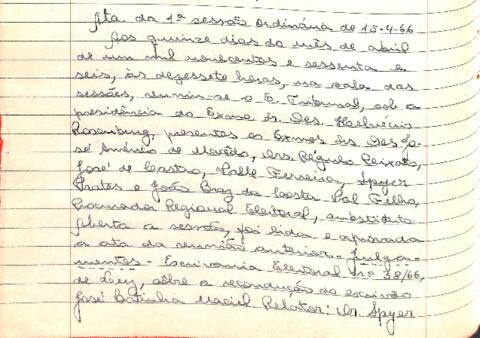 Ata da 1ª sessão ordinária de 15-4-66
Aos quinze dias do mês de abril
de um mil novecentos e sessenta e
seis, às dezessete horas, na sala das
sessões, reuniu-se o E. Tribunal, sob a
presidência do Exmo Sr. Des. Helvécio
Rosenburg, presentes os Exmos Srs Des Jo-
sé Américo de Macêdo, Drs. Régulo Peixoto,
José de Castro, Valle Ferreira, Spyer
Prates e João Braz da Costa Val Filho,
Procurador Regional Eleitoral, substituto.
Aberta a sessão, foi lida e aprovada
a ata da reunião anterior. - Julga-
mentos - Escrivania Eleitoral nº 38/66,
de Luz, sôbre a recondução do escrivão
José Botinha Maciel Relator: Dr. Spyer